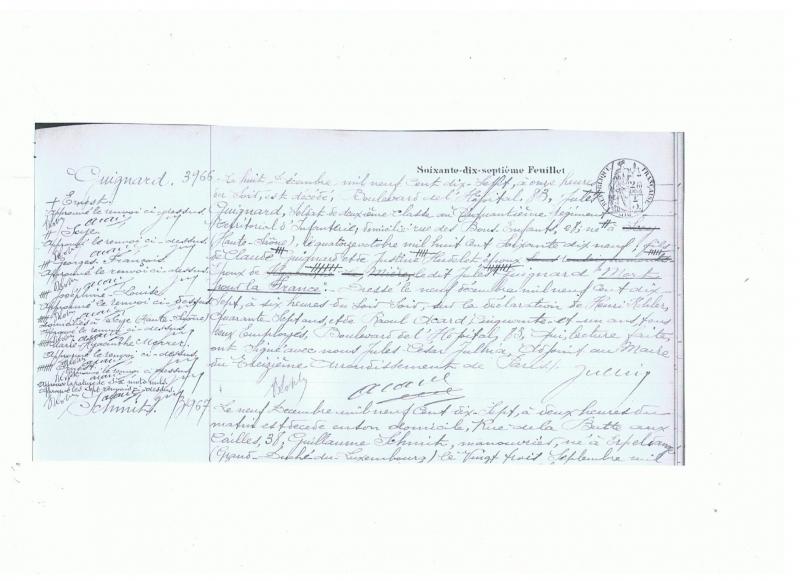 Soixante-dix-septième Feuillet
RÉPUBLIQUE FRANÇAISE
Guignard. 3966
Le huit décembre mil neuf cent dix-sept, à onze heures
du soir, est décédé, Boulevard de l'Hôpital, 83, Jules
Guignard, soldat de deuxième classe au Cinquantième Régiment
Territorial d'Infanterie, domicilié rue des Bons Enfants, 28, né à
(Haute-Saône), le quatre octobre mil huit cent soixante dix neuf, fils
de Claude Guignard et de Justine époux
Époux de ledit Jules Guignard "Mort
pour la France". Dressé le neuf décembre mil neuf cent dix
sept, à six heures du soir, sur la déclaration de Henri
quarante sept ans et de Raoul Acard, cinquante et un ans, tous
deux Employés, Boulevard de l'Hôpital, 83, qui lecture faite,
ont signé avec nous Jules César Jullien, Adjoint au Maire
du Treizième Arrondissement de Paris.
Ernest.
Approuvé le renvoi ci-dessus
Approuvé le renvoi ci-dessus.
Georges, François
Approuvé le renvoi ci-dessus.
Joséphine-Louise
Approuvé le renvoi ci-dessus
(Haute-Saône)
Approuvé le renvoi ci-dessus
Marie Hyacinthe
Approuvé le renvoi ci-dessus.
Ernest
Approuvé le renvoi ci-dessus.
Acard
Schmit. 3967
Le neuf décembre mil neuf cent dix-sept, à deux heures du
matin est décédé en son domicile, Rue de la Butte aux
Cailles, 38, Guillaume Schmit, manouvrier, né à
(Grand-Duché du Luxembourg) le vingt trois septembre mil